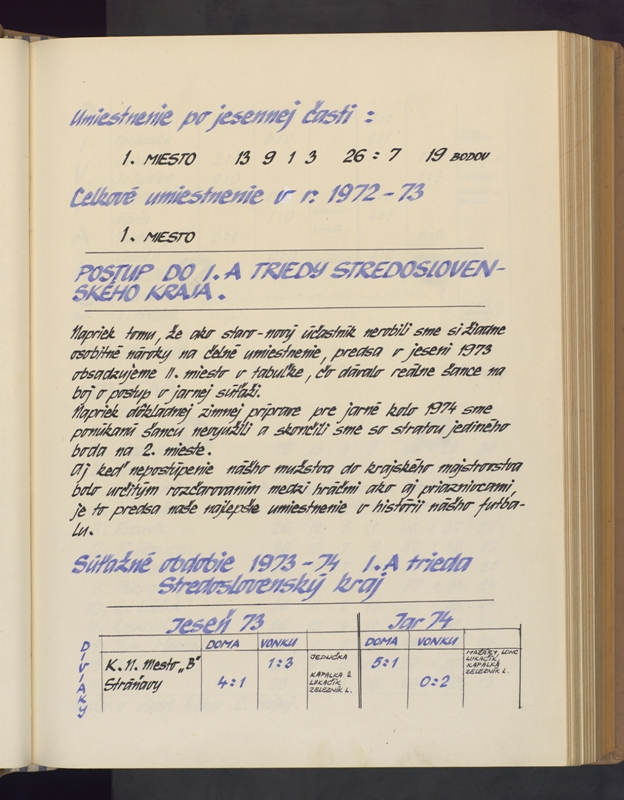 Umiestnenie po jesennej časti :
1. MIESTO 13 9 1 3 26 : 7 19 BODOV
Celkové umiestnenie v r. 1972 - 73
1. MIESTO
POSTUP DO I. A TRIEDY STREDOSLOVEN-
SKÉHO KRAJA.
Napriek tomu, že ako staro-nový účastník nerobili sme si žiadne
osobitné nároky na čelné umiestnenie, predsa v jeseni 1973
obsadzujeme II. miesto v tabuľke, čo dávalo reálne šance na
boj o postup v jarnej súťaži.
Napriek dôkladnej zimnej príprave pre jarné kolo 1974 sme
ponúkanú šancu nevyužili a skončili sme so stratou jediného
boda na 2. mieste.
Aj keď nepostúpenie nášho mužstva do krajského majstrovstva
bolo určitým rozčarovaním medzi hráčmi ako aj priaznivcami,
je to predsa naše najlepšie umiestnenie v histórii nášho futba-
lu.
Súťažné obdobie 1973 - 74 I. A trieda
Stredoslovenský kraj
Jeseň 73 Jar 74
DOMA VONKU DOMA VONKU
DIVIAKY
K. N. Mesto „B" 1:3 JEDLIČKA 5:1 MAŽÁRY, LONC
LUKAČÍK,
KAPALKA
ŽELEZNÍK L.
Stráňavy 4:1 KAPALKA 2 0:2
LUKAČÍK
ŽELEZNÍK L.